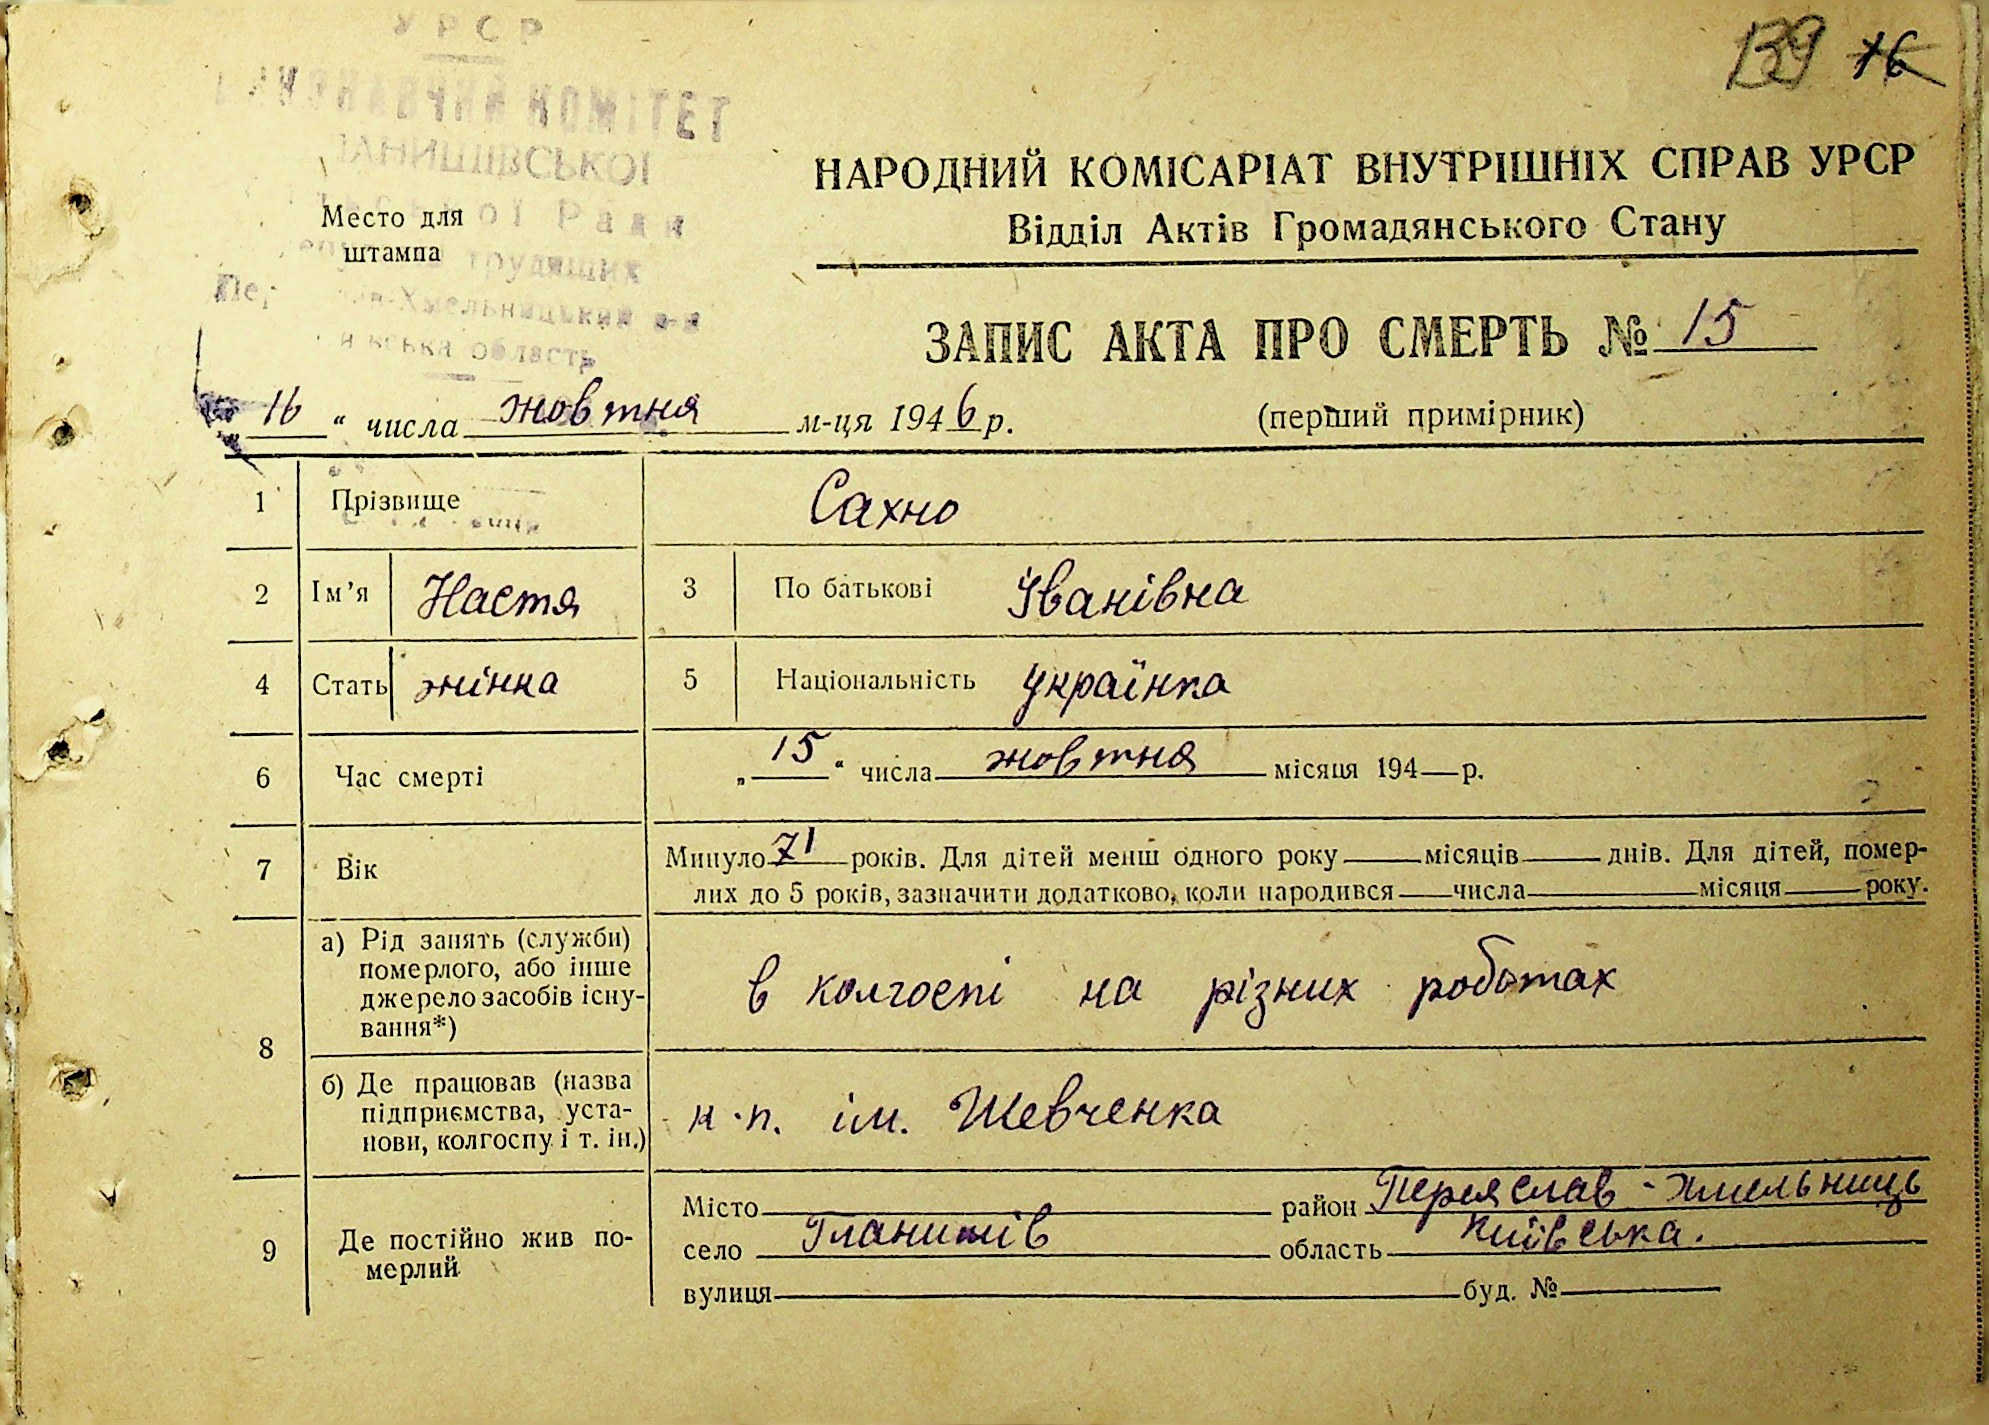 УРСР
139 16
НАРОДНИЙ КОМІСАРІАТ ВНУТРІШНІХ СПРАВ УРСР
Відділ Актів Громадянського Стану
Место для
штампа
трудящих
Хмельницький р-н
область
ЗАПИС АКТА ПРО СМЕРТЬ № 15
„16“ числа жовтня м-ця 1946 р.
(перший примірник)
1 Прізвище Сахно
2 Ім’я Настя 3 По батькові Іванівна
4 Стать жінка 5 Національність українка
6 Час смерті „15“ числа жовтня місяця 194—р.
7 Вік Минуло 71 років. Для дітей менш одного року — місяців — днів. Для дітей, помер-
лих до 5 років, зазначити додатково, коли народився — числа — місяця — року.
8 а) Рід занять (служби)
померлого, або інше
джерело засобів існу-
вання*)
в колгоспі на різних роботах
б) Де працював (назва
підприємства, уста-
нови, колгоспу і т. ін.)
к-п. ім. Шевченка
9 Де постійно жив по-
мерлий
Місто — район Переяслав-Хмельниць
село Гланишів область Київська.
вулиця — буд. № —